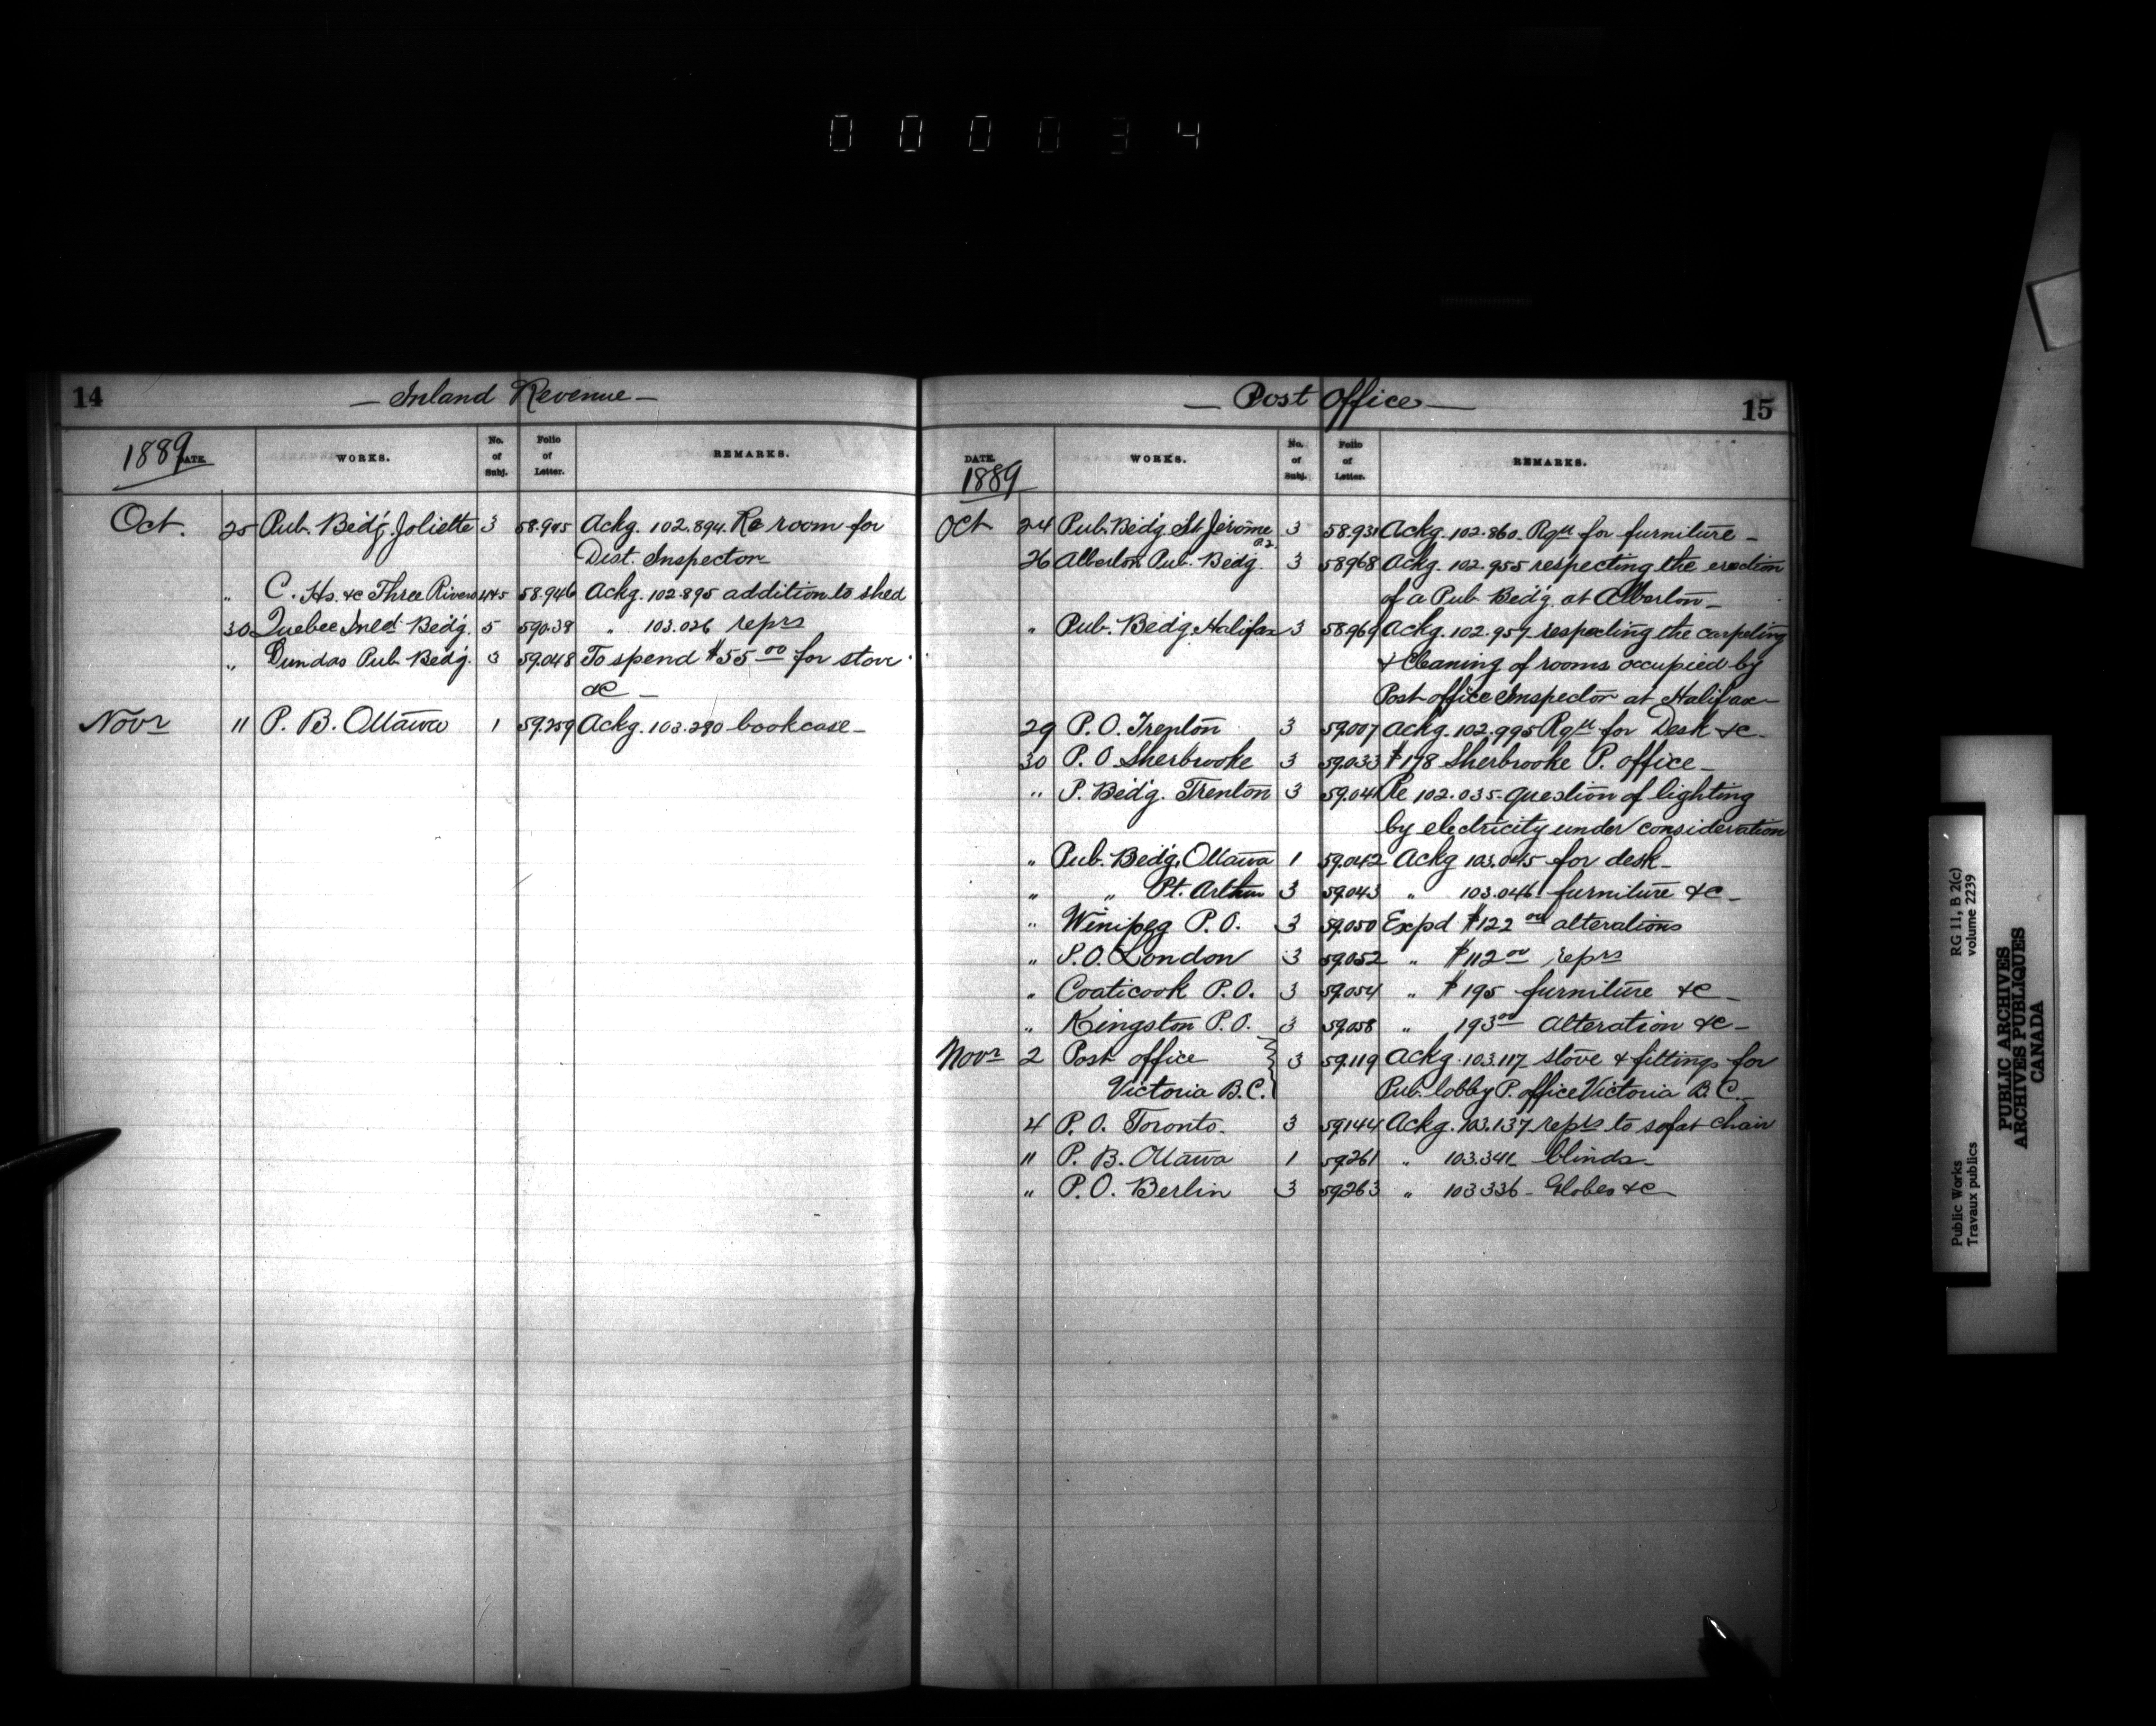 000034
14
— Inland Revenue —
1889 DATE. WORKS. No. of Subj. Folio of Letter. REMARKS.
Oct. 25 Pub. Beidg. Joliette 3 58.945 Ackg. 102.894. Re room for
Dist. Inspector
" C. Hs. &c Three Rivers 4&5 58.946 Ackg. 102.895 addition to shed
30 Quebec Inld. Beidg. 5 59.039 " 103.026 reprs
" Dundas Pub. Beidg. 3 59.048 To spend $55.00 for stove
&c —
Novr 11 P. B. Ottawa 1 59.259 Ackg. 103.280 bookcase —
— Post Office — 15
DATE. 1889 WORKS. No. of Subj. Folio of Letter. REMARKS.
Oct 24 Pub. Beidg. St Jérome P.2. 3 58.931 Ackg. 102.860. Rqst for furniture —
26 Alberton Pub. Beidg. 3 58968 Ackg. 102.955 respecting the erection
of a Pub. Beidg. at Alberton —
" Pub. Beidg. Halifax 3 58.969 Ackg. 102.957 respecting the carpeting
& cleaning of rooms occupied by
Post office Inspector at Halifax —
29 P. O. Trenton 3 59.007 Ackg. 102.995 Rqst for Desk &c —
30 P. O Sherbrooke 3 59.033 $178 Sherbrooke P. office —
" P. Beidg. Trenton 3 59.041 Re 102.035 question of lighting
by electricity under consideration
" Pub. Beidg. Ottawa 1 59.042 Ackg 103.045 for desk —
" " Pt. Arthur 3 59.043 " 103.046 furniture &c —
" Winipeg P. O. 3 59.050 Expd $122 00 alterations
" P.O. London 3 59.052 " $112 00 reprs
" Coaticook P. O. 3 59.054 " $195 furniture &c —
" Kingston P. O. 3 59.058 " 193 00 Alteration &c —
Novr 2 Post office 3 59.119 Ackg. 103.117 stove & fittings for
Victoria B.C. Pub. lobby P. office Victoria B. C. —
4 P. O. Toronto. 3 59.144 Ackg. 103.137 reprs to sofa & chair
11 P. B. Ottawa 1 59.261 " 103.341 blinds —
" P. O. Berlin 3 59.263 " 103336 — Globes &c —
Public Works RG 11, B 2(c)
Travaux publics volume 2239
PUBLIC ARCHIVES
ARCHIVES PUBLIQUES
CANADA